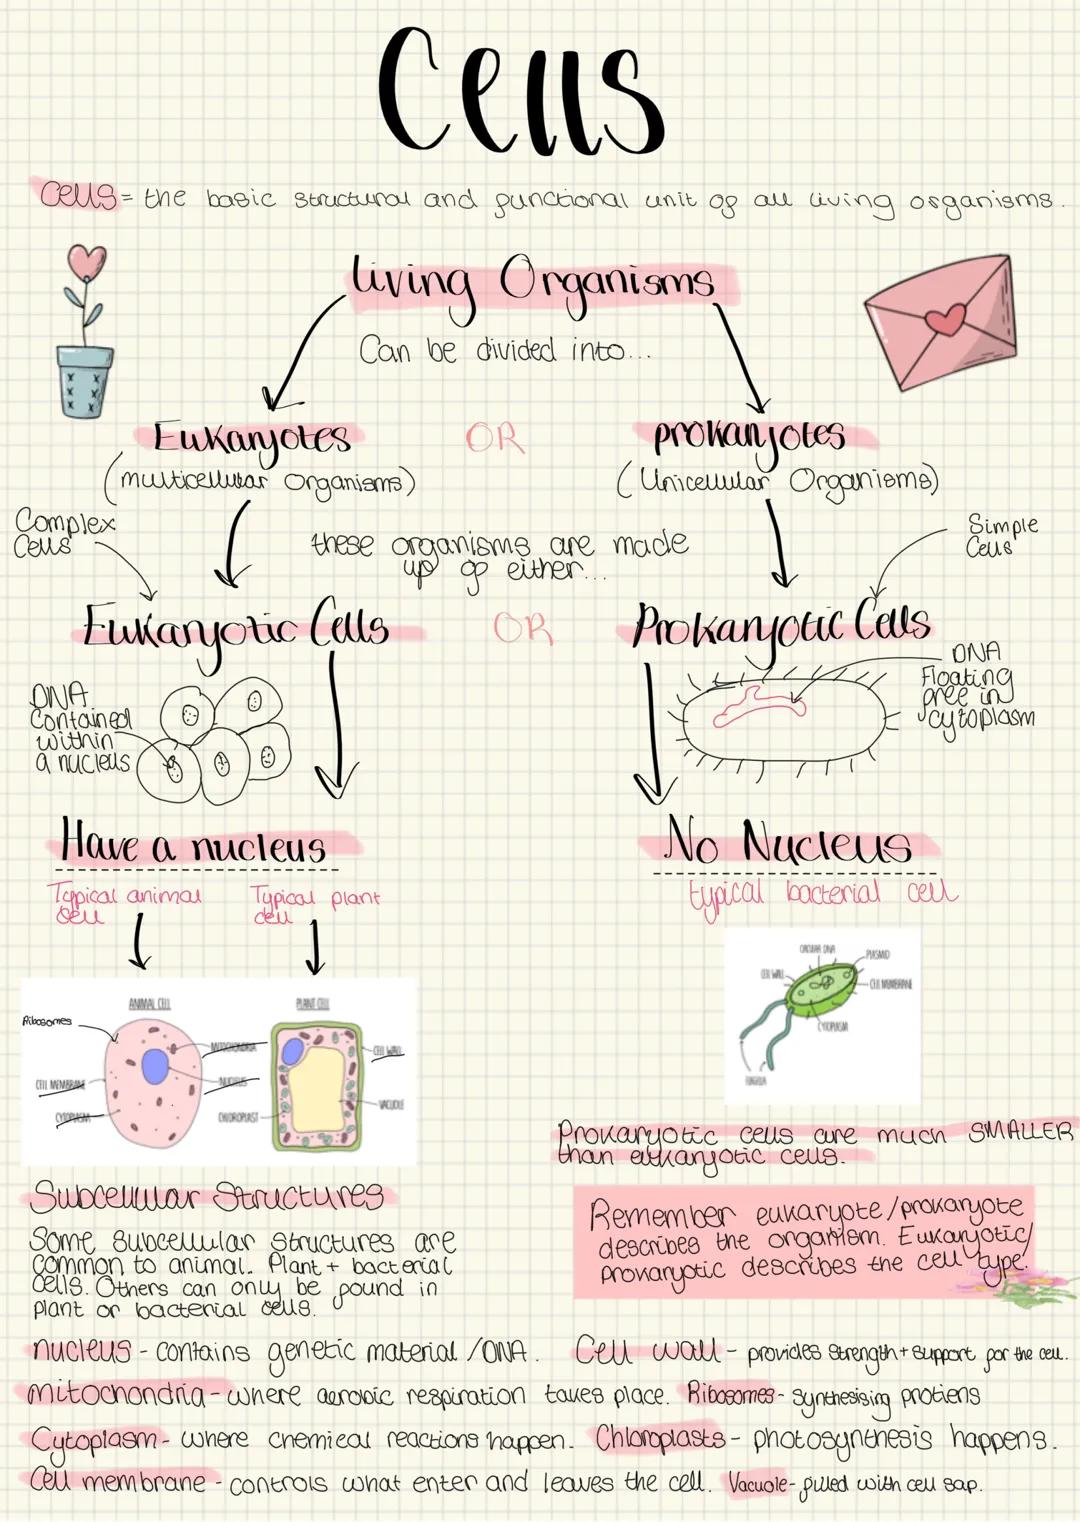 Cells
Cells = the basic structural and functional unit of all living organisms.
living Organisms
Can be divided into...
Eukaryotes
OR
prokaryotes
(multicellular Organisms)
(Unicellular Organisms)
Complex
Cells
these organisms are made
up of either...
Simple
Cells
Eukaryotic Cells
OR
Prokaryotic Cells
DNA
Contained
within
a nucleus
DNA
Floating
free in
cytoplasm
Have a nucleus
No Nucleus
Typical animal
cell
Typical plant
cell
typical bacterial cell
ANIMAL CELL
PLANT CELL
Ribosomes
MITOCHONDRIA
CELL WALL
CELL MEMBRANE
NUCLEUS
CYTOPLASM
CHLOROPLAST
VACUOLE
CIRCULAR DNA
PLASMID
CELL WALL
CELL MEMBRANE
CYTOPLASM
FLAGELLA
Prokaryotic cells are much SMALLER
than eukaryotic cells.
Subcellular Structures
Some subcellular structures are
common to animal. Plant + bacterial
cells. Others can only be found in
plant or bacterial cells.
Remember eukaryote/prokaryote
describes the organism. Eukaryotic/
prokaryotic describes the cell type.
nucleus - contains genetic material / DNA.
Cell wall - provides strength + support for the cell.
mitochondria - where aerobic respiration takes place.
Ribosomes - synthesising protiens
Cytoplasm - where chemical reactions happen.
Chloroplasts - photosynthesis happens.
Cell membrane - controls what enter and leaves the cell.
Vacuole - filled with cell sap.